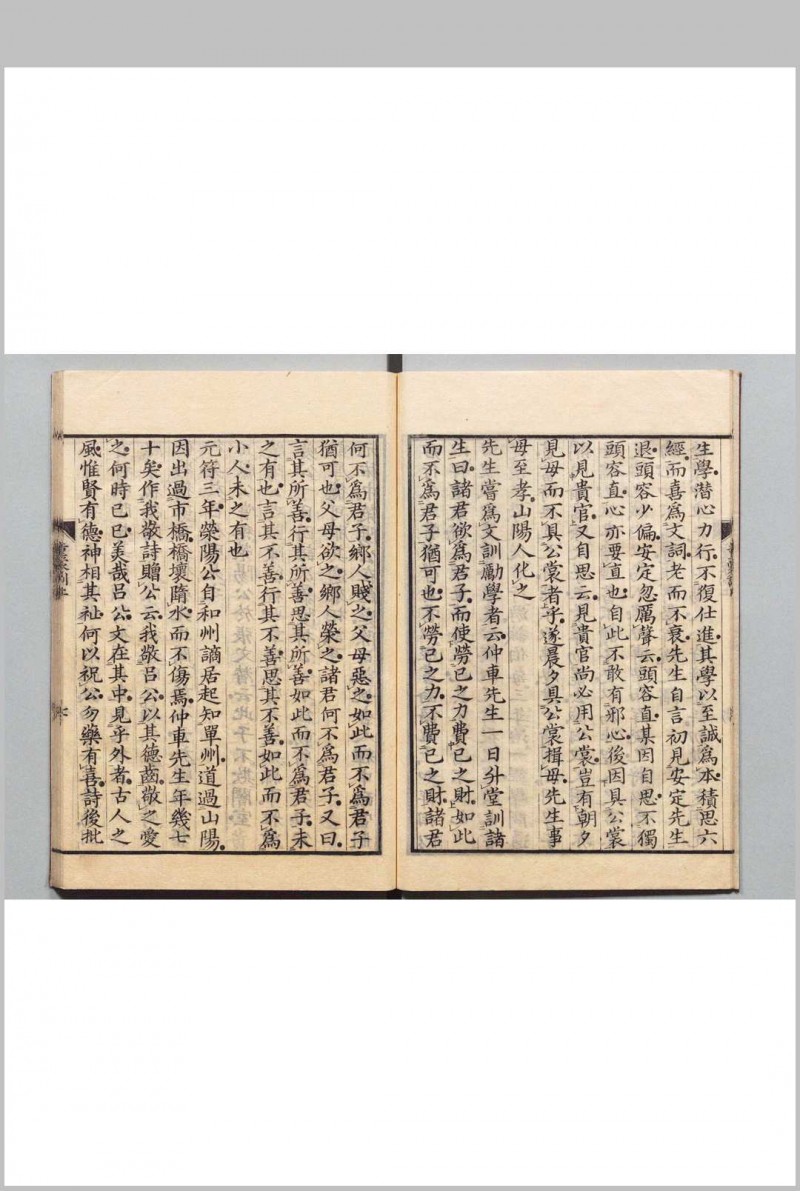 生學潛心力行不復仕進其學以至誠爲本積思六
經而喜爲文詞老而不衰先生自言初見安定先生
退頭容少偏安定忽厲聲云頭容直某因自思不獨
頭容直心亦要直也自此不敢有邪心後因具公裳
以見貴官又自思云見貴官尚必用公裳豈有朝夕
見母而不具公裳者乎遂晨夕具公裳揖母先生事
母至孝山陽人化之
先生嘗爲文訓勵學者云仲車先生一日升堂訓諸
生曰諸君欲爲君子而使勞己之力費己之財如此
而不爲君子猶可也不勞己之力不費己之財諸君
何不爲君子鄉人賤之父母惡之如此而不爲君子
猶可也父母欲之鄉人榮之諸君何不爲君子又曰
言其所善行其所善思其所善如此而不爲君子未
之有也言其不善行其不善思其不善如此而不爲
小人未之有也
元符三年滎陽公自和州謫居起知單州道過山陽
因出過市橋橋壞隋水而不傷焉仲車先生年幾七
十矣作我敬詩贈公云我敬呂公以其德齒敬之愛
之何時已已美哉呂公文在其中見乎外者古人之
風惟賢有德神相其祉何以祝公勿藥有喜詩後批